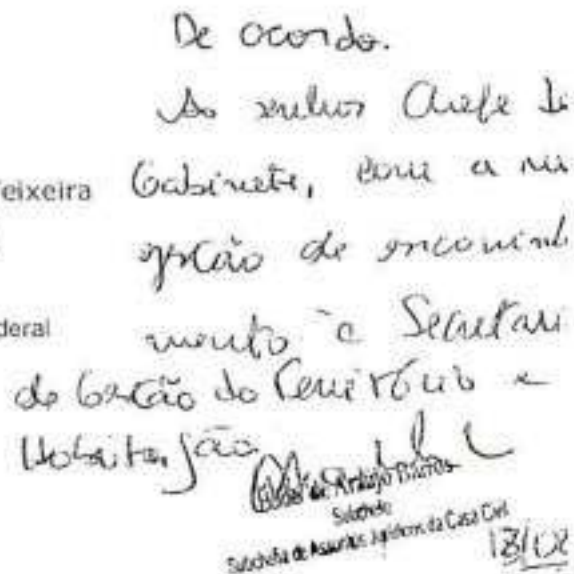 De acordo.
Ao senhor Chefe de
Gabinete, com a su
eixeira
gestão de encaminh
deral
mento à Secretari
de Gestão do Território e
Habitação
de Araújo Barros
Subchefe
Subchefia de Assuntos Jurídicos da Casa Civil